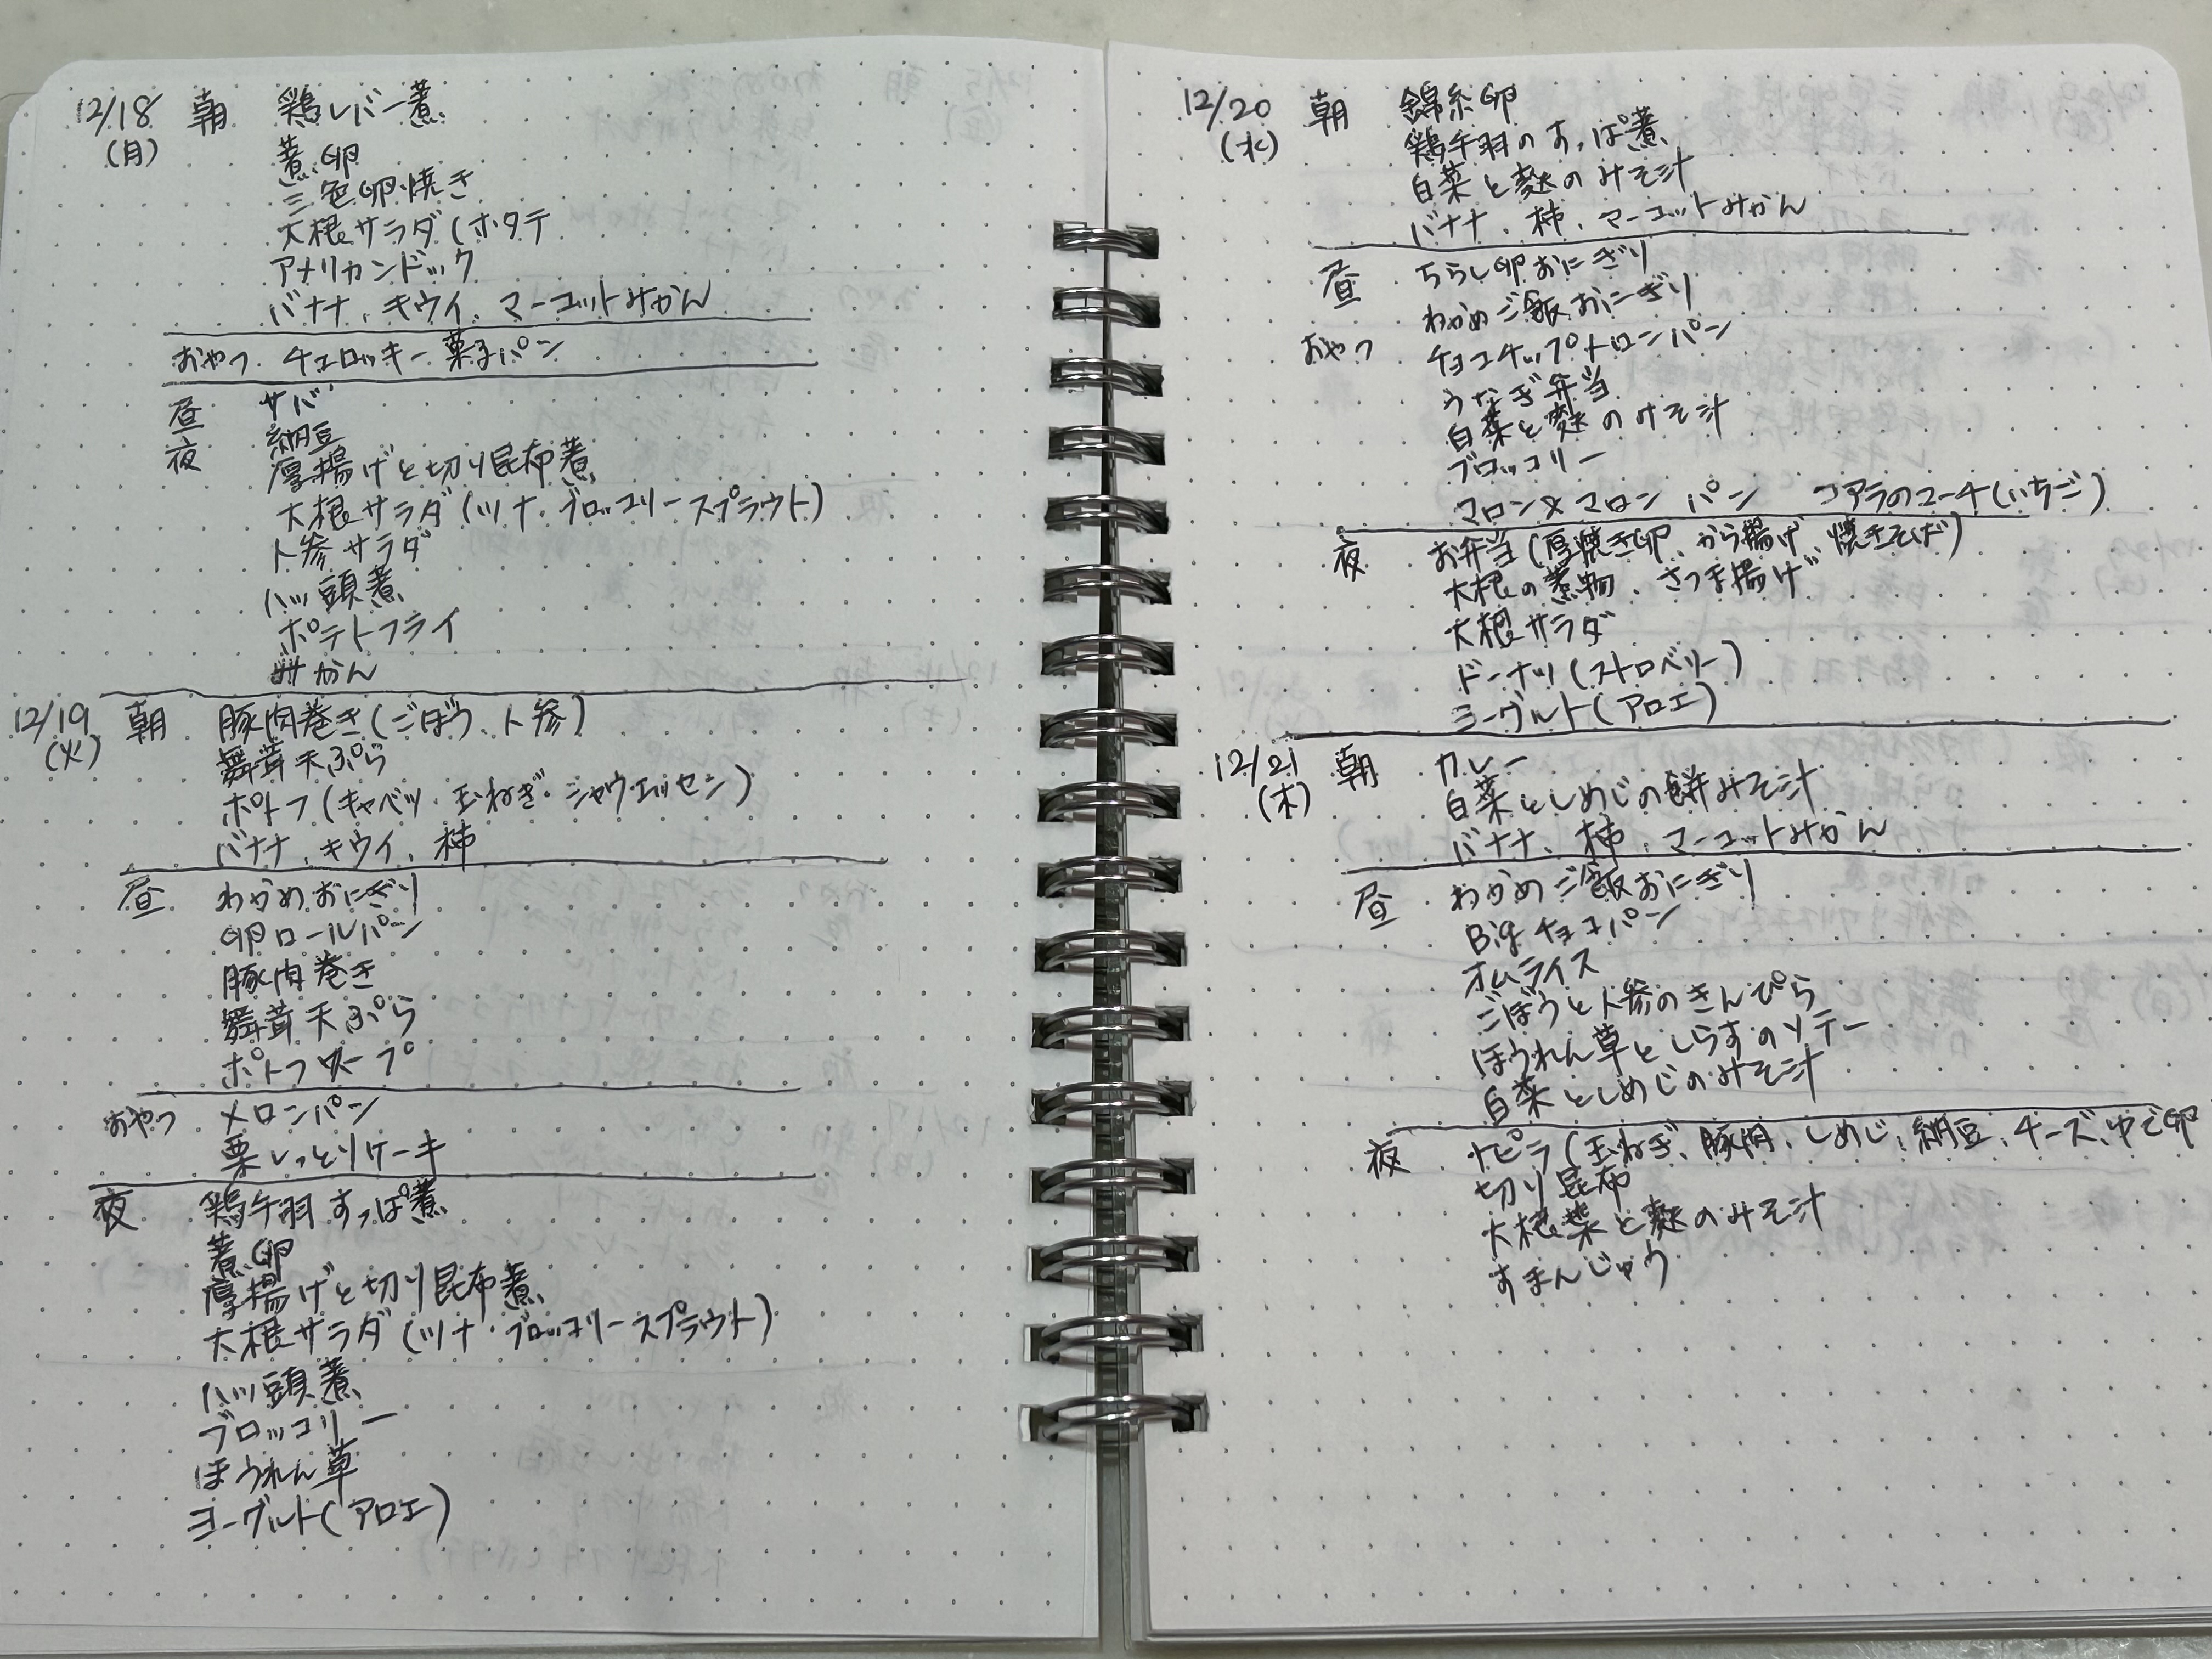 12/18 朝 鶏レバー煮
(月)
煮卵
三色卵焼き
大根サラダ(ホタテ
アメリカンドック
バナナ、キウイ、マーコットみかん
おやつ チュロッキー 菓子パン
昼 サバ
夜 納豆
厚揚げと切り昆布煮
大根サラダ(ツナ・ブロッコリースプラウト)
人参サラダ
八ッ頭煮
ポテトフライ
みかん
12/19 朝 豚肉巻き(ごぼう、人参)
(火)
舞茸天ぷら
ポトフ(キャベツ・玉ねぎ・シャウエッセン)
バナナ、キウイ、柿
昼 わかめおにぎり
卵ロールパン
豚肉巻き
舞茸天ぷら
ポトフスープ
おやつ メロンパン
栗しっとりケーキ
夜 鶏手羽すっぱ煮
煮卵
厚揚げと切り昆布煮
大根サラダ(ツナ・ブロッコリースプラウト)
八ッ頭煮
ブロッコリー
ほうれん草
ヨーグルト(アロエ)
12/20 朝 錦糸卵
(水)
鶏手羽のすっぱ煮
白菜と麩のみそ汁
バナナ、柿、マーコットみかん
昼 ちらし卵おにぎり
わかめご飯おにぎり
おやつ チョコチップメロンパン
うなぎ弁当
白菜と麩のみそ汁
ブロッコリー
マロン&マロン パン コアラのマーチ(いちご)
夜 お弁当(厚焼き卵、から揚げ、焼きそば)
大根の煮物、さつま揚げ
大根サラダ
ドーナツ(ストロベリー)
ヨーグルト(アロエ)
12/21 朝 カレー
(木)
白菜としめじの餅みそ汁
バナナ、柿、マーコットみかん
昼 わかめご飯おにぎり
Bigチョコパン
オムライス
ごぼうと人参のきんぴら
ほうれん草としらすのソテー
白菜としめじのみそ汁
夜 ナピラ(玉ねぎ、豚肉、しめじ、納豆、チーズ、ゆで卵
切り昆布
大根葉と麩のみそ汁
すまんじゅう